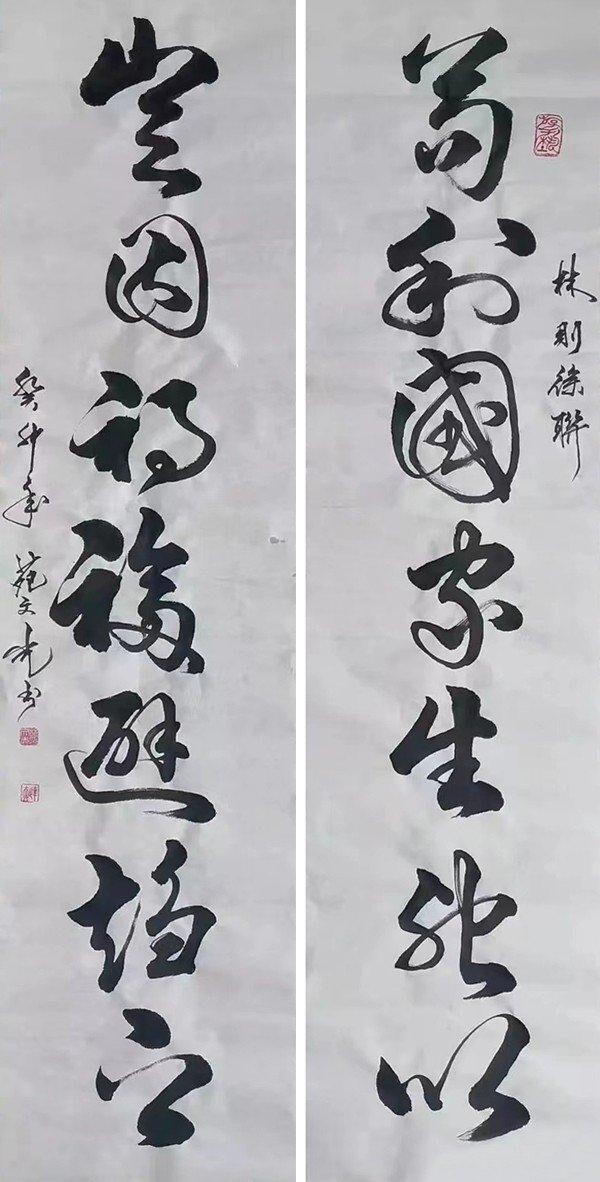 林則徐聯
苟利國家生死以
豈因禍福避趨之
癸卯年 苑文 书